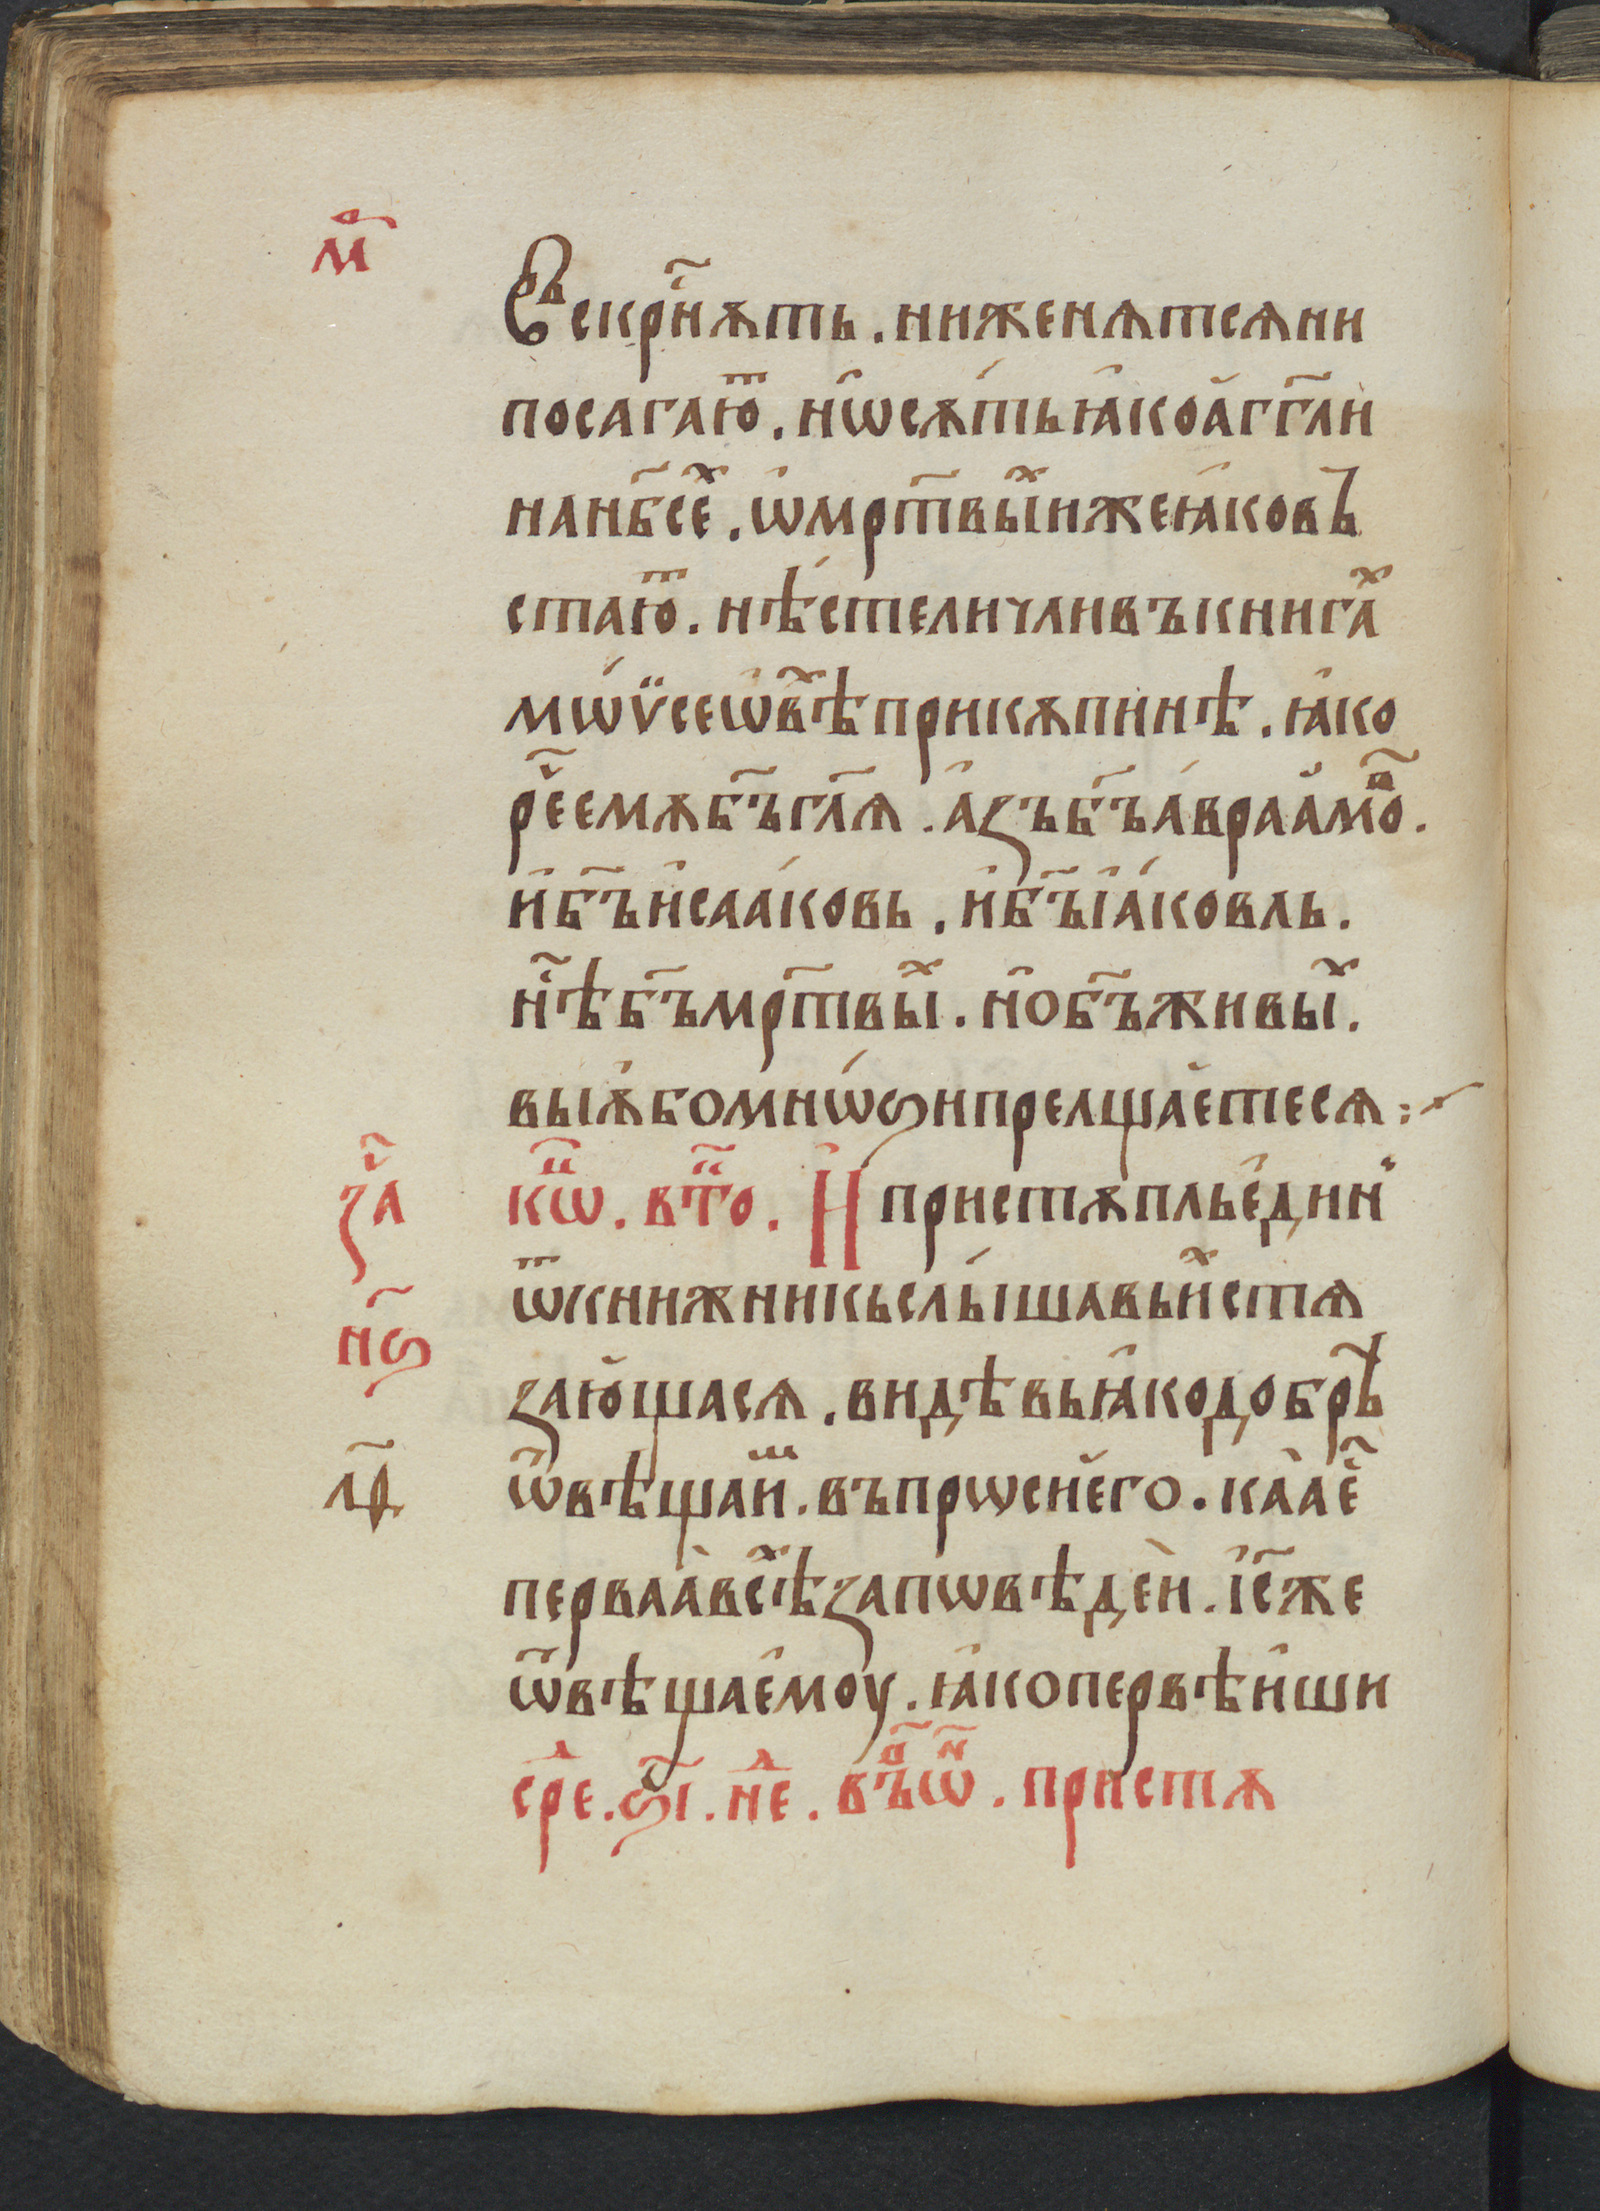 м҃а
Въскрⷭ҇нѫть . ни женѧтсѧ ни
посагаюⷮ . нѡ̑ сѫ́ть ꙗ̑ко а҆гг҃ли
на нб҃сеⷯ . ѡ̑ мр҃твыⷯ и же ꙗ̑ко въ
стаюⷮ . нѣ́сте ли чли въ книгаⷯ
мѡ́ѵ̈сеѡ̑вⷯѣ при кѫпинѣ . ꙗ̑ко
реⷱ҇ емѫ бг҃ъ гл҃ѧ . а̑зъ бг҃ъ а́враа́моⷡ҇ .
и̑ бг҃ъ и̑саа́ковь . и̑ бг҃ъ і̑а́ковль .
нⷭ҇ѣ бг҃ъ мр҃твыⷯ . но̑ бг҃ъ живыⷯ .
вы ѫ̑бо мнѡ́ѕи прелщае̑тесѧ :~
заⷱ҇
н҃ѕ
кѡⷰ҇ . вт҃оⷬ . И пристѫпль е̑дин
ѿ книжникь слы́шавь иⷯ стѧ
заю̑щасѧ . видѣвь ꙗ̑ко добрѣ
лⷴ
ѿвѣща иⷨ . въпрѡси е̑го . каа̀ еⷭ҇
перваа̀ всⷯѣ заповѣдеи . і҃с же
ѿвѣща е̑моу . ꙗ̑ко первѣи̑ши
среⷣ . ѕ҃і . неⷣ . въⷪ҇ ѡⷩ҇ . пристѫ